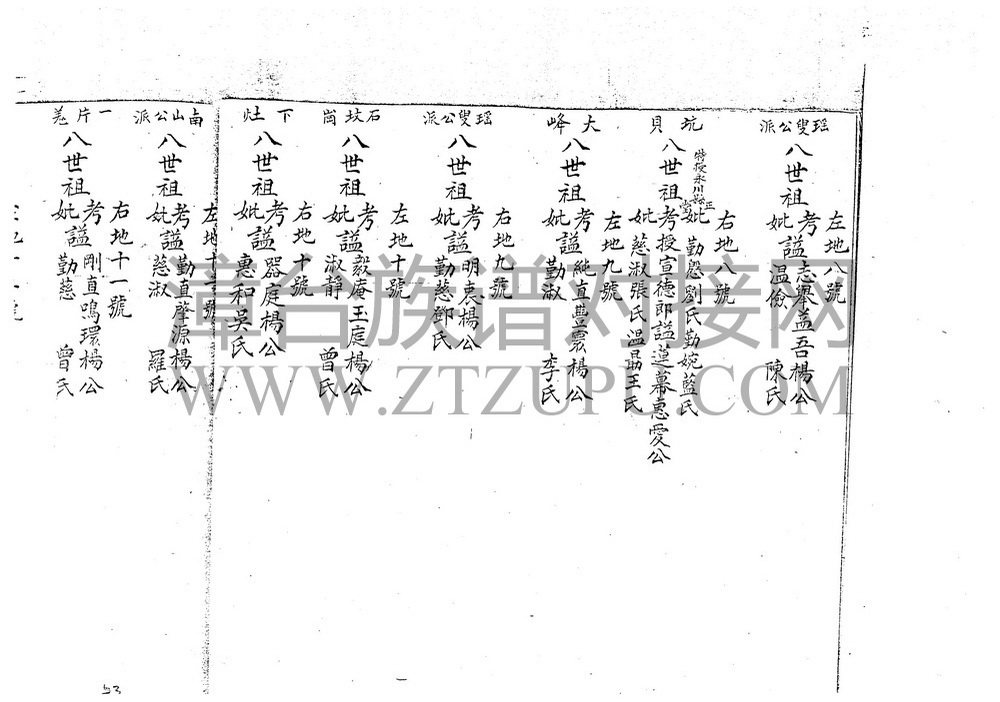 瑶叟公派
左地八號
八世祖考諡志舉益吾楊公
妣 溫儉 陳氏
坑貝
右地八號
特授永川縣正堂
八世祖考授宣德郎諡蓮幕惠愛公
妣 勤慇劉氏勤婉藍氏
妣 慈淑張氏溫勗王氏
大峰
左地九號
八世祖考諡純直豊寰楊公
妣 勤淑 李氏
瑶叟公派
右地九號
八世祖考諡明衷楊公
妣 勤慈鄧氏
石坟崗
左地十號
八世祖考諡毅庵玉庭楊公
妣 淑靜 曾氏
下灶
右地十號
八世祖考諡器庭楊公
妣 惠和吳氏
南山公派
左地十一號
八世祖考諡勤直肇源楊公
妣 慈淑 羅氏
一片羗
右地十一號
八世祖考諡剛直鳴環楊公
妣 勤慈 曾氏
53
漳台族谱对接网
WWW.ZTZUPU.COM